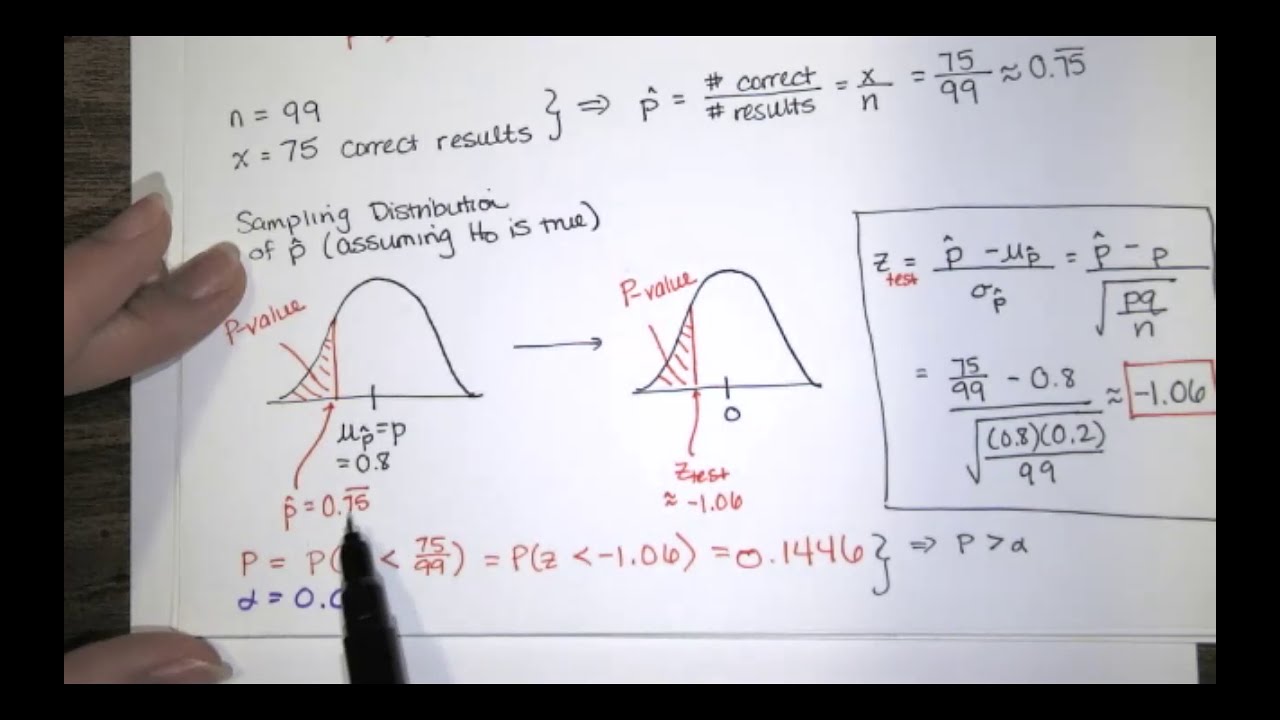 n = 99
x = 75 correct results } ⇒ p̂ = # correct / # results = x/n = 75/99 ≈ 0.7̅5̅
Sampling Distribution
of p̂ (assuming H₀ is true)
P-value
μp̂ = p
= 0.8
p̂ = 0.7̅5̅
P-value
0
z test
≈ -1.06
z test = (p̂ - μp̂) / σp̂ = (p̂ - p) / √(pq/n)
= (75/99 - 0.8) / √((0.8)(0.2)/99) ≈ -1.06
P = P( < 75/99) = P(z < -1.06) = 0.1446 } ⇒ P > α
α = 0.0